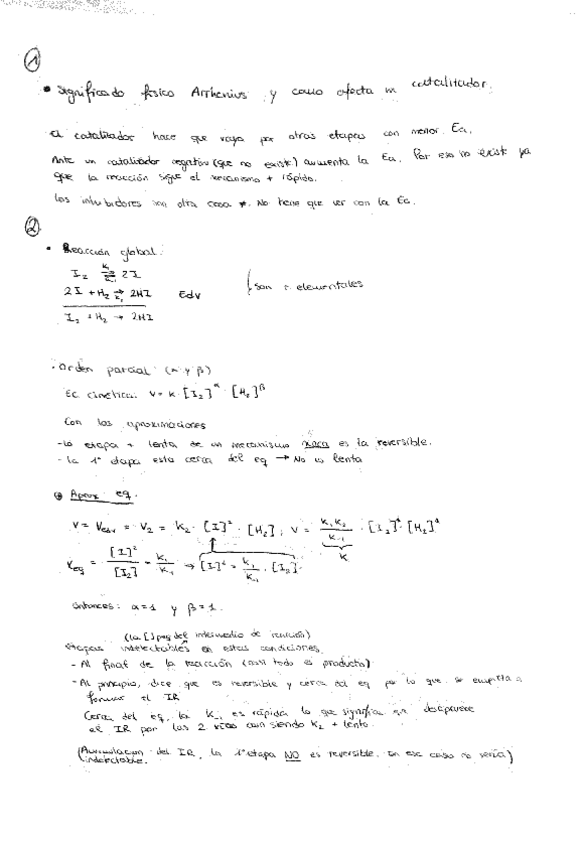 ①
• Significado físico Arrhenius y como afecta un catalitzador.
El catalizador hace que vaya por otras etapas con menor Ea.
Ante un catalizador negativo (que no existe) aumenta la Ea. Por eso no existe ya
que la reacción sigue el mecanismo + rápido.
Los inhibidores son otra cosa ≠. No tiene que ver con la Ea.
②
• Reacción global:
I₂ ⇌ 2I
2I + H₂ → 2HI Edv
son r. elementales
I₂ + H₂ → 2HI
• Orden parcial: (α y β)
Ec. cinética: v = k · [I₂]^α · [H₂]^β
Con las aproximaciones
- La etapa + lenta de un mecanismo nunca es la reversible.
- La 1ª etapa esta cerca del eq → No es lenta
Aprox eq.
V = Vedv = V₂ = k₂ · [I]² · [H₂] ; v = k₁k₂/k₋₁ · [I₂]¹ · [H₂]¹
K
Keq = [I]²/[I₂] = k₁/k₋₁ → [I]² = k₁/k₋₁ · [I₂]
entonces: α = 1 y β = 1.
(la [ ] del intermedio de reacción)
Etapas indetectables en estas condiciones.
- Al final de la reacción (casi todo es producto)
- Al principio, dice que es reversible y cerca del eq por lo que se empieza a
formar el IR
Cerca del eq, la k₋₁ es rápida lo que significa que desaparece
el IR por las 2 vías aun siendo k₂ + lento.
(Acumulacion del IR, la 1ª etapa NO es reversible. En ese caso no sería
indetectable.)